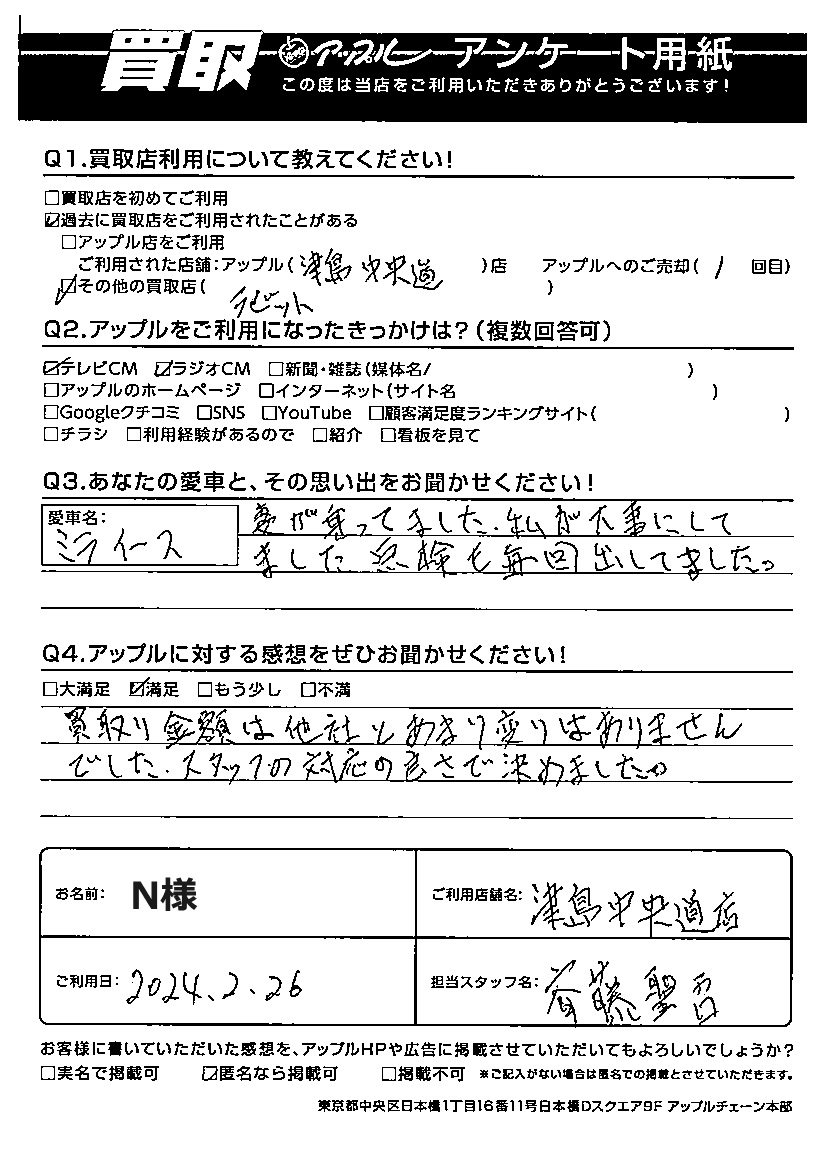 買取 アップル アンケート用紙
この度は当店をご利用いただきありがとうございます!
Q1.買取店利用について教えてください!
□買取店を初めてご利用
☑過去に買取店をご利用されたことがある
□アップル店をご利用
ご利用された店舗:アップル(津島中央道)店 アップルへのご売却(1回目)
☑その他の買取店(ラビット)
Q2.アップルをご利用になったきっかけは?(複数回答可)
☑テレビCM ☑ラジオCM □新聞・雑誌(媒体名/ )
□アップルのホームページ □インターネット(サイト名 )
□Googleクチコミ □SNS □YouTube □顧客満足度ランキングサイト( )
□チラシ □利用経験があるので □紹介 □看板を見て
Q3.あなたの愛車と、その思い出をお聞かせください!
愛車名:
ミライース
妻が乗ってました.私が大事にして
ました点検も毎回出してました。
Q4.アップルに対する感想をぜひお聞かせください!
□大満足 ☑満足 □もう少し □不満
買取り金額は他社とあまり変りはありません
でした.スタッフの対応の良さで決めました。
お名前: N様 ご利用店舗名: 津島中央道店
ご利用日: 2024.2.26 担当スタッフ名: 斉藤
お客様に書いていただいた感想を、アップルHPや広告に掲載させていただいてもよろしいでしょうか?
□実名で掲載可 ☑匿名なら掲載可 □掲載不可 ※ご記入がない場合は匿名での掲載とさせていただきます。
東京都中央区日本橋1丁目16番11号日本橋Dスクエア9F アップルチェーン本部